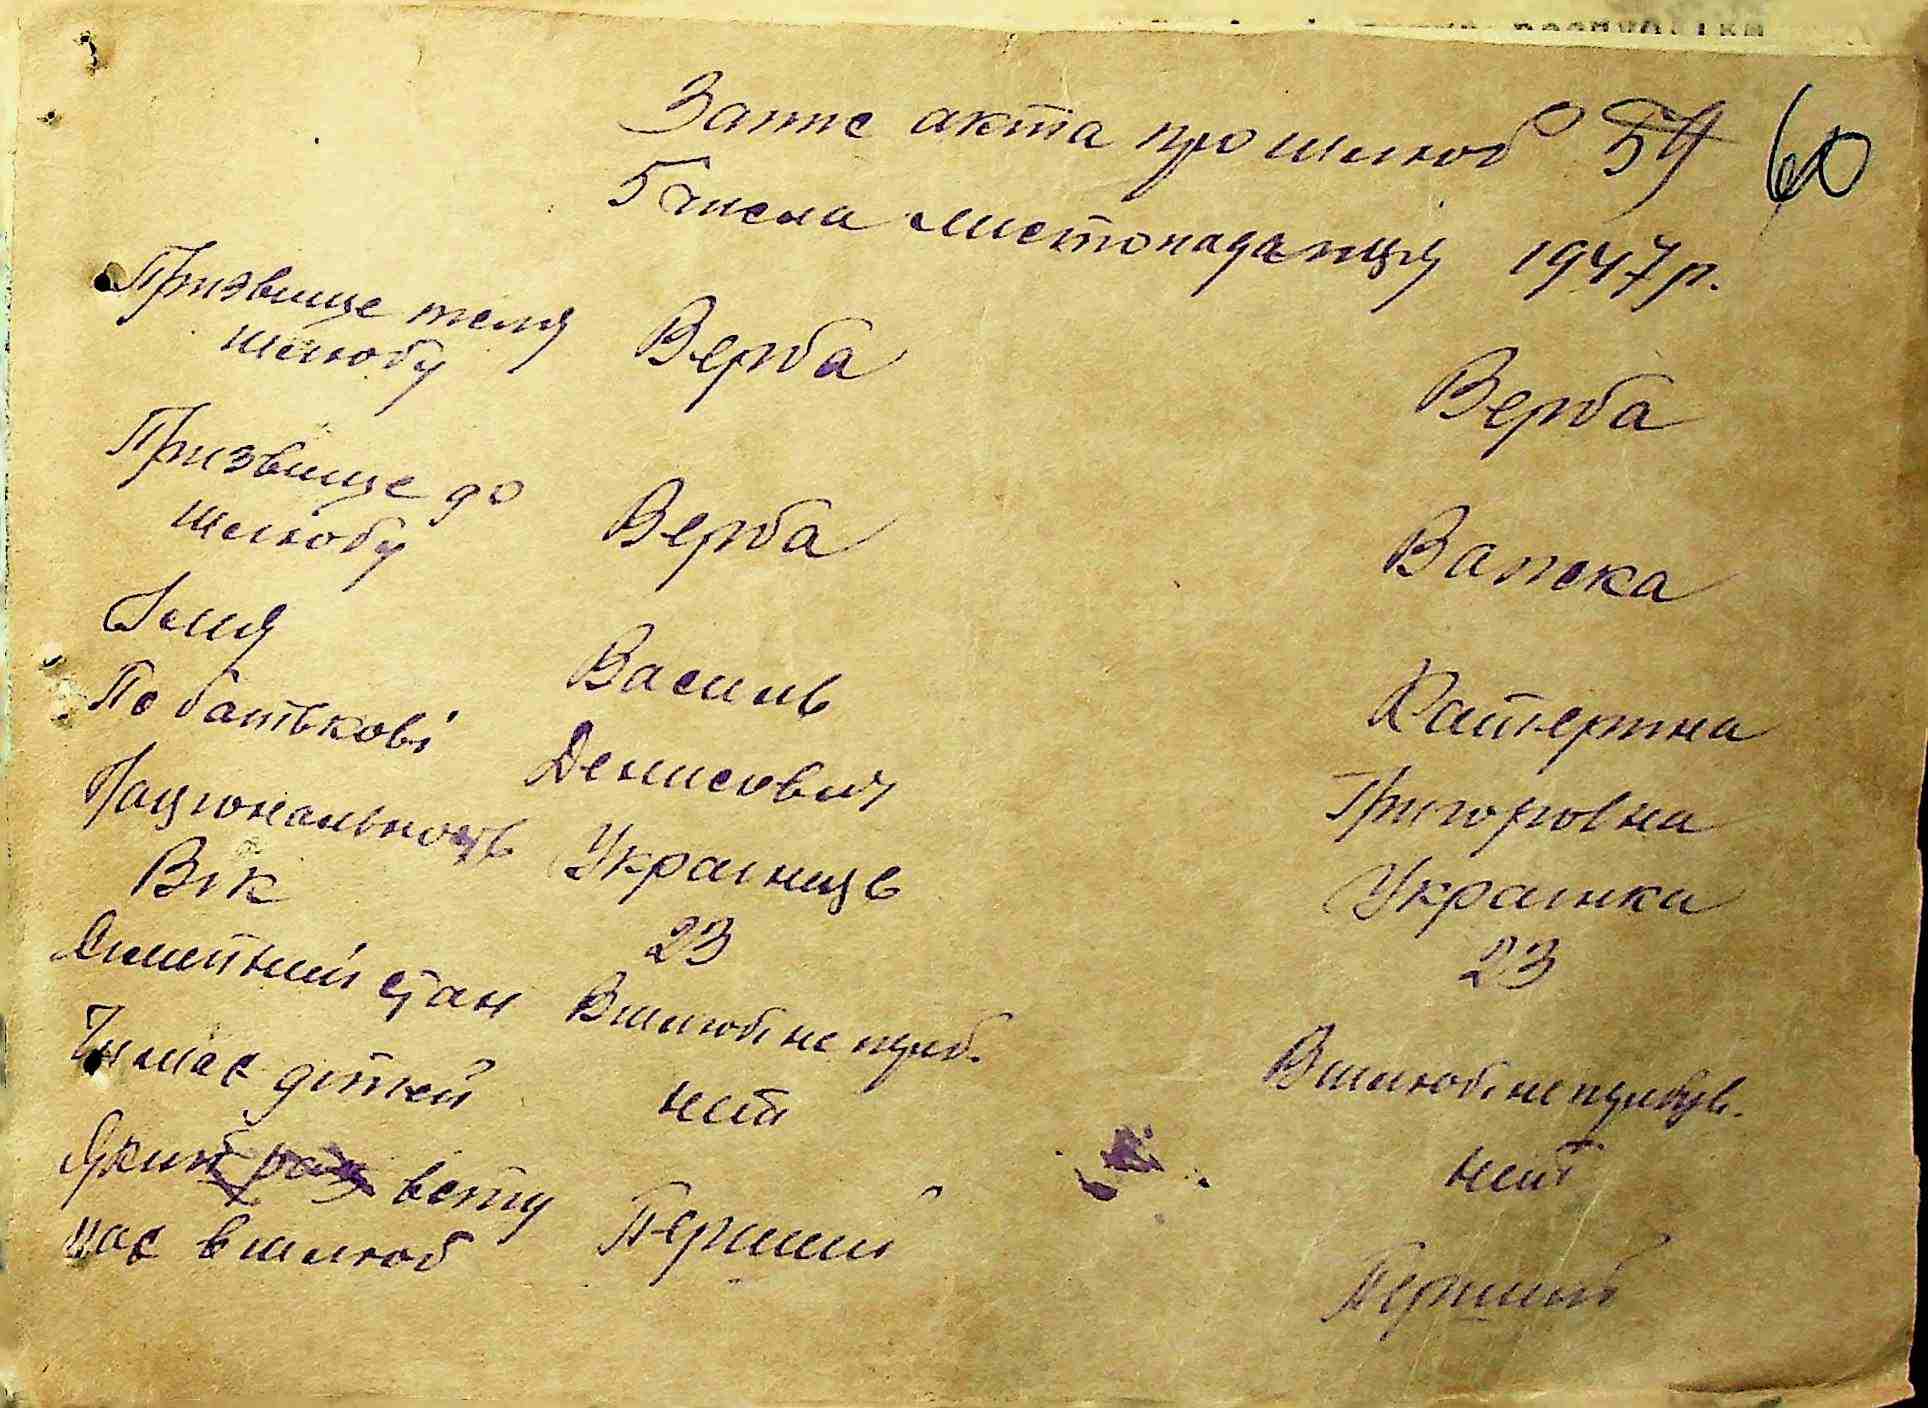 Запис акта про шлюб 59 60
5 числа листопада м-ця 1947 р.
Призвище писля
шлюбу Верба Верба
Призвище до
шлюбу Верба Важска
Імя Василь Катерина
По батькові Денисович Григоровна
Національность Українць Українка
Вік 23 23
Симейний стан Вшлюбі не преб. Вшлюбі не пребув.
Чи має дітей неит неит
Який раз вступ
пає вшлюб Перший Перший